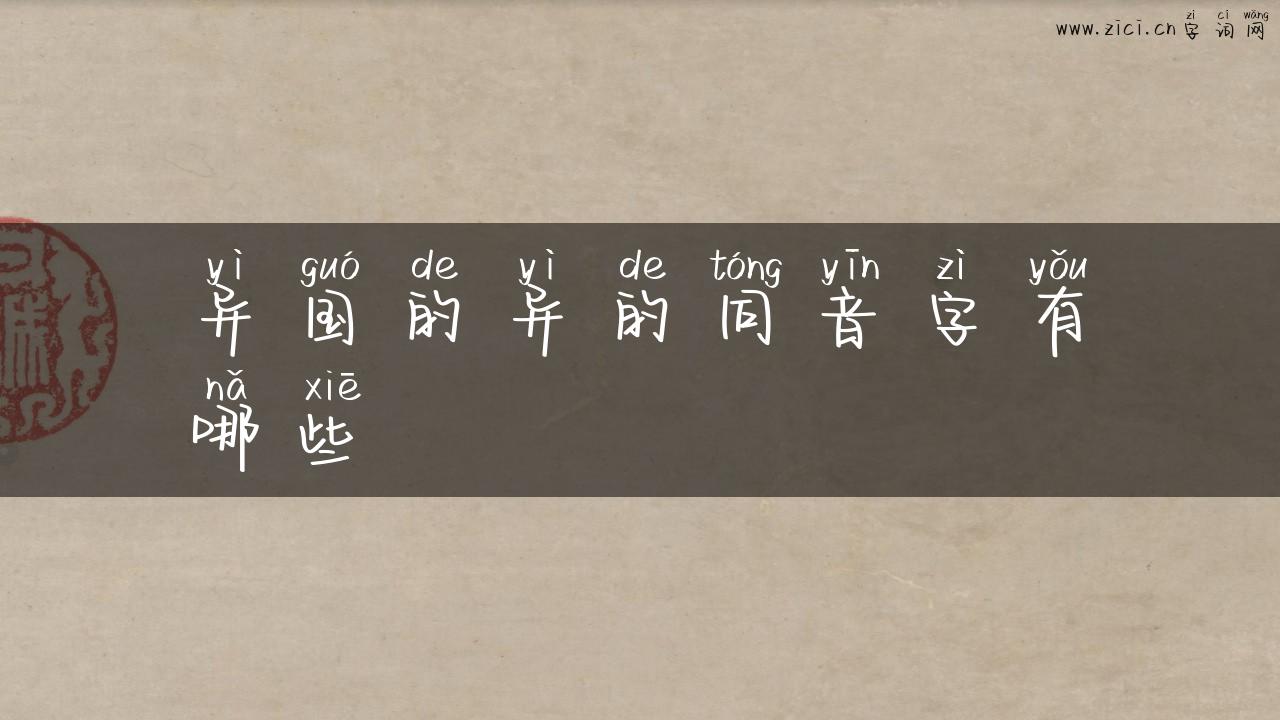 zì cí wǎng
www.zici.cn 字 词 网
yì guó de yì de tóng yīn zì yǒu
异 国 的 异 的 同 音 字 有
nǎ xiē
哪 些